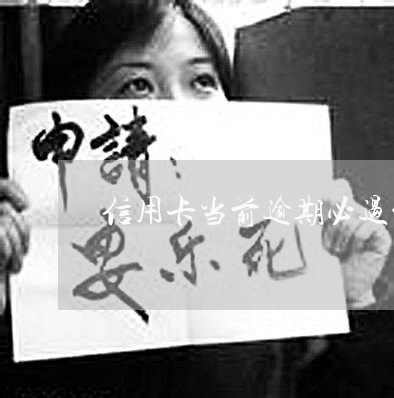 申請：
信用卡当前逾期必過
安乐死